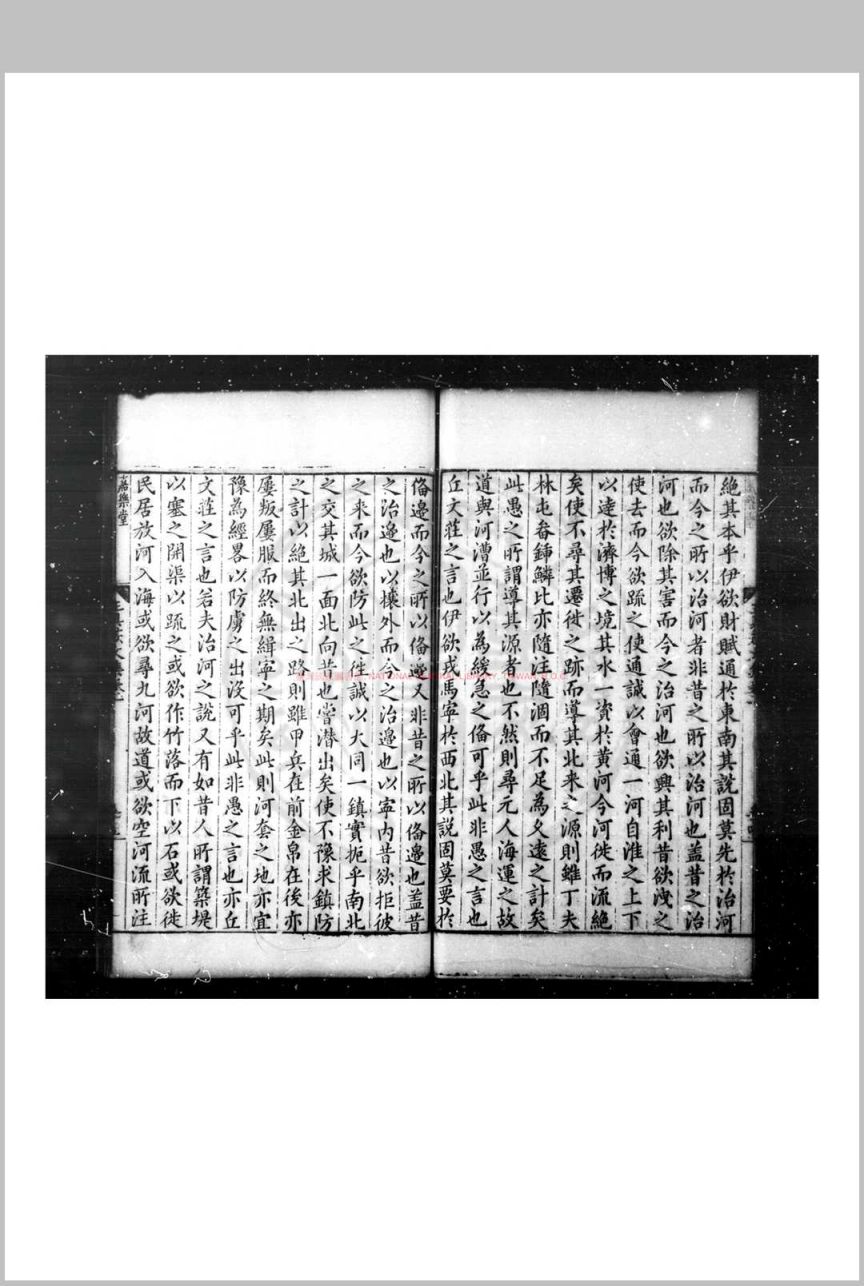 絶其本乎伊欲財賦通於東南其説固莫先於治河
而今之所以治河者非昔之所以治河也盖昔之治
河也欲除其害而今之治河也欲興其利昔欲洩之
使去而今欲疏之使通誠以會通一河自淮之上下
以達於濟博之境其水一資於黄河今河徙而流絶
矣使不尋其遷徙之跡而導其北来之源則雖丁夫
林屯畚鍤鱗比亦隨注隨涸而不足為久遠之計矣
此愚之所謂導其源者也不然則尋元人海運之故
道與河漕並行以為緩急之俻可乎此非愚之言也
丘文莊之言也伊欲戎馬寧於西北其説固莫要於
俻邊而今之所以俻邊又非昔之所以俻邊也盖昔
之治邊也以攘外而今之治邊也以寧内昔欲拒彼
之来而今欲防此之徃誠以大同一鎮實扼乎南北
之交其城一面北向昔也嘗潜出矣使不豫求鎮防
之計以絶其北出之路則雖甲兵在前金帛在後亦
屢叛屢服而終無緝寧之期矣此則河套之地亦宜
豫為經畧以防虜之出没可乎此非愚之言也亦丘
文莊之言也若夫治河之説又有如昔人所謂築堤
以塞之開渠以疏之或欲作竹落而下以石或欲徙
民居放河入海或欲尋九河故道或欲空河流所注
嘉樂堂
NATIONAL CENTRAL LIBRARY, TAIWAN, R.O.C.